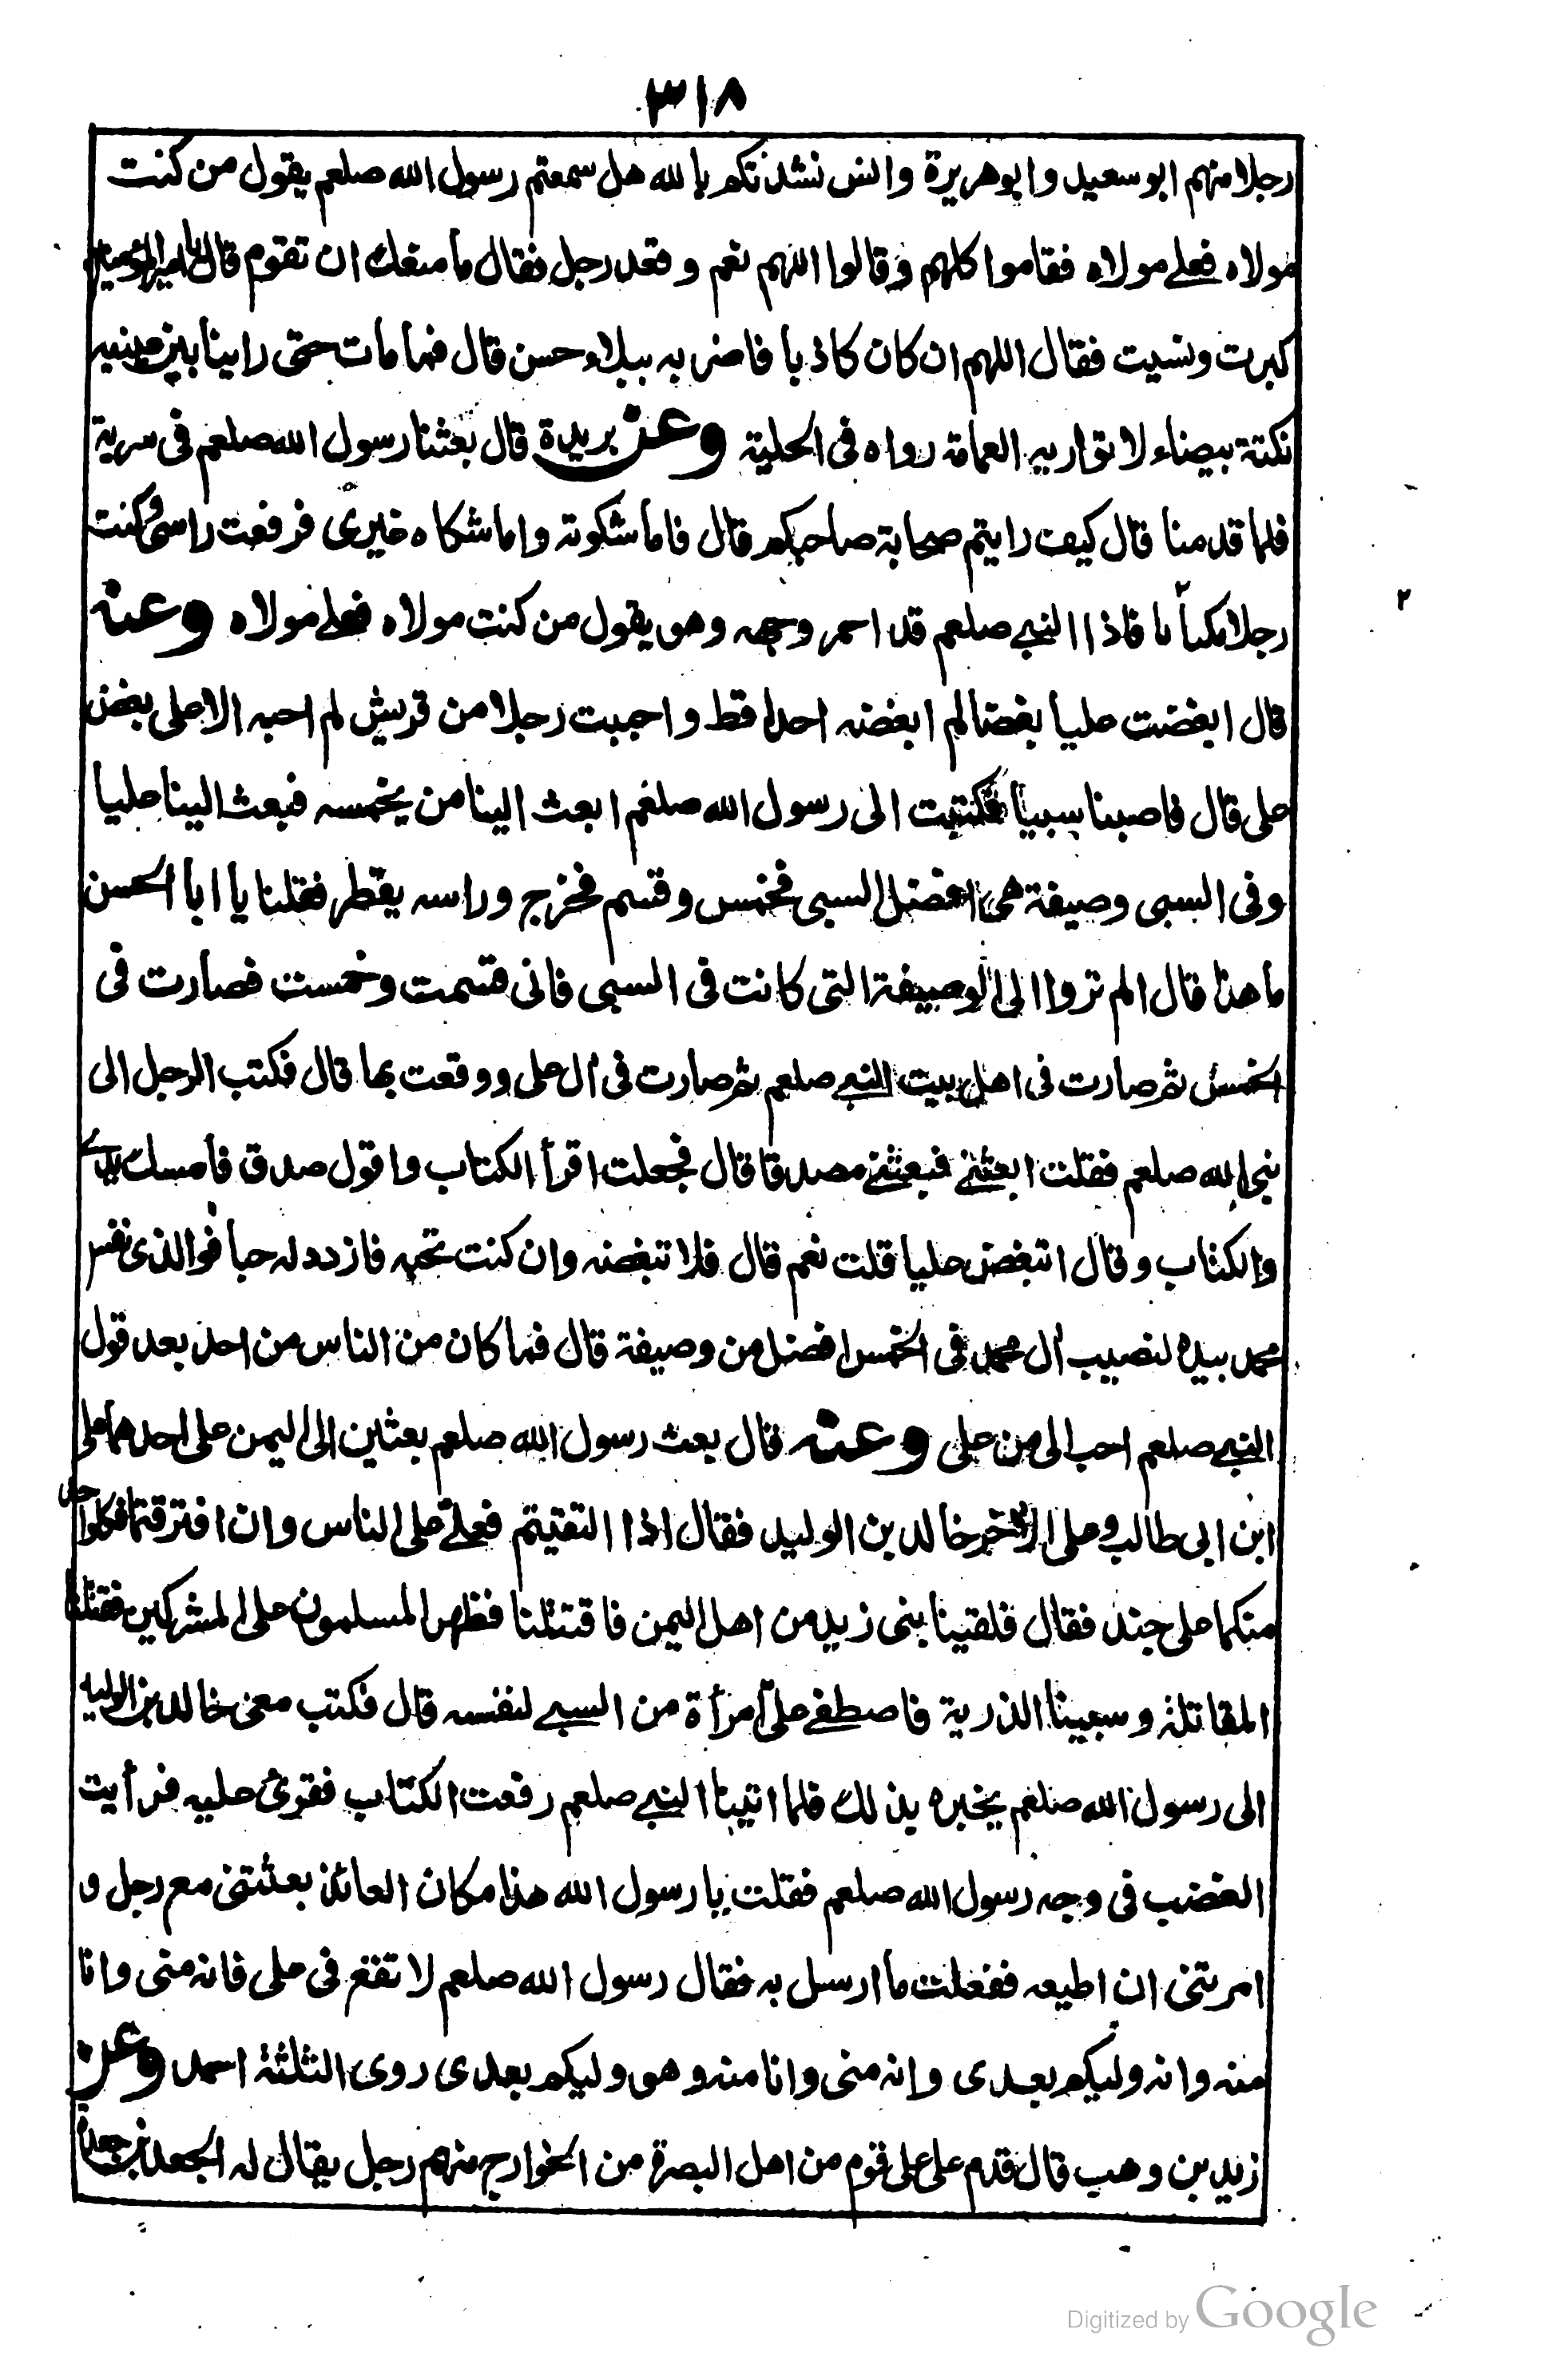 ٣١٨
رجلا منهم ابو سعيد وابو هريرة وانس نشدتكم بالله هل سمعتم رسول الله صلعم يقول من كنت
مولاه فعلي مولاه فقاموا كلهم وقالوا اللهم نعم وقعد رجل فقال ما منعك ان تقوم قال يا امير المؤمنين
كبرت ونسيت فقال اللهم ان كان كاذبا فاضربه ببلاء حسن قال فما مات حتى راينا بين عينيه
نكتة بيضاء لا تواريه العمامة رواه فى الحلية وعن بريدة قال بعثنا رسول الله صلعم فى سرية
فلما قدمنا قال كيف رايتم صحابة صاحبكم قال فاما شكوته واما شكاه غيرى فرفعت راسى وكنت
رجلا مكبابا فاذا النبي صلعم قد احمر وجهه وهو يقول من كنت مولاه فعلي مولاه وعنه
قال ابغضت عليا بغضا لم ابغضه احدا قط واحببت رجلا من قريش لم احبه الا على بغض
على قال فاصبنا سبيا فكتبت الى رسول الله صلعم ابعث الينا من يخمسه فبعث الينا عليا
وفى السبى وصيفة هى افضل السبى فخمس وقسم فخرج وراسه يقطر فقلنا يا ابا الحسن
ما هذا قال الم تروا الى الوصيفة التى كانت فى السبى فانى قسمت وخمست فصارت فى
الخمس ثم صارت فى اهل بيت النبي صلعم ثم صارت فى آل على ووقعت بها قال فكتب الرجل الى
نبى الله صلعم فقلت ابعثني فبعثني مصدقا قال فجعلت اقرأ الكتاب واقول صدق فامسك يدي
والكتاب وقال اتبغض عليا قلت نعم قال فلا تبغضه وان كنت تحبه فازدد له حبا فوالذى نفس
محمد بيده لنصيب آل محمد فى الخمس افضل من وصيفة قال فما كان من الناس من احد بعد قول
النبي صلعم احب الى من على وعنه قال بعث رسول الله صلعم بعثين الى اليمن على احدهما على
ابن ابى طالب وعلى الآخر خالد بن الوليد فقال اذا التقيتم فعلي على الناس وان افترقتما فكل واحد
منكما على جند فقال فلقينا بنى زيد من اهل اليمن فاقتتلنا فظهر المسلمون على المشركين فقتلنا
المقاتلة وسبينا الذرية فاصطفى علي امرأة من السبي لنفسه قال فكتب معى خالد بن الوليد
الى رسول الله صلعم يخبره بذلك فلما اتيت النبي صلعم رفعت الكتاب فقرئ عليه فرأيت
الغضب فى وجه رسول الله صلعم فقلت يا رسول الله هذا مكان العائذ بعثتنى مع رجل و
امرتنى ان اطيعه ففعلت ما ارسل به فقال رسول الله صلعم لا تقع فى على فانه منى وانا
منه وانه وليكم بعدى وانه منى وانا منه وهو وليكم بعدى روى الثلثة احمد وعن
زيد بن وهب قال قدم على على قوم من اهل البصرة من الخوارج منهم رجل يقال له الجعد بن بعجة
٢
Digitized by Google